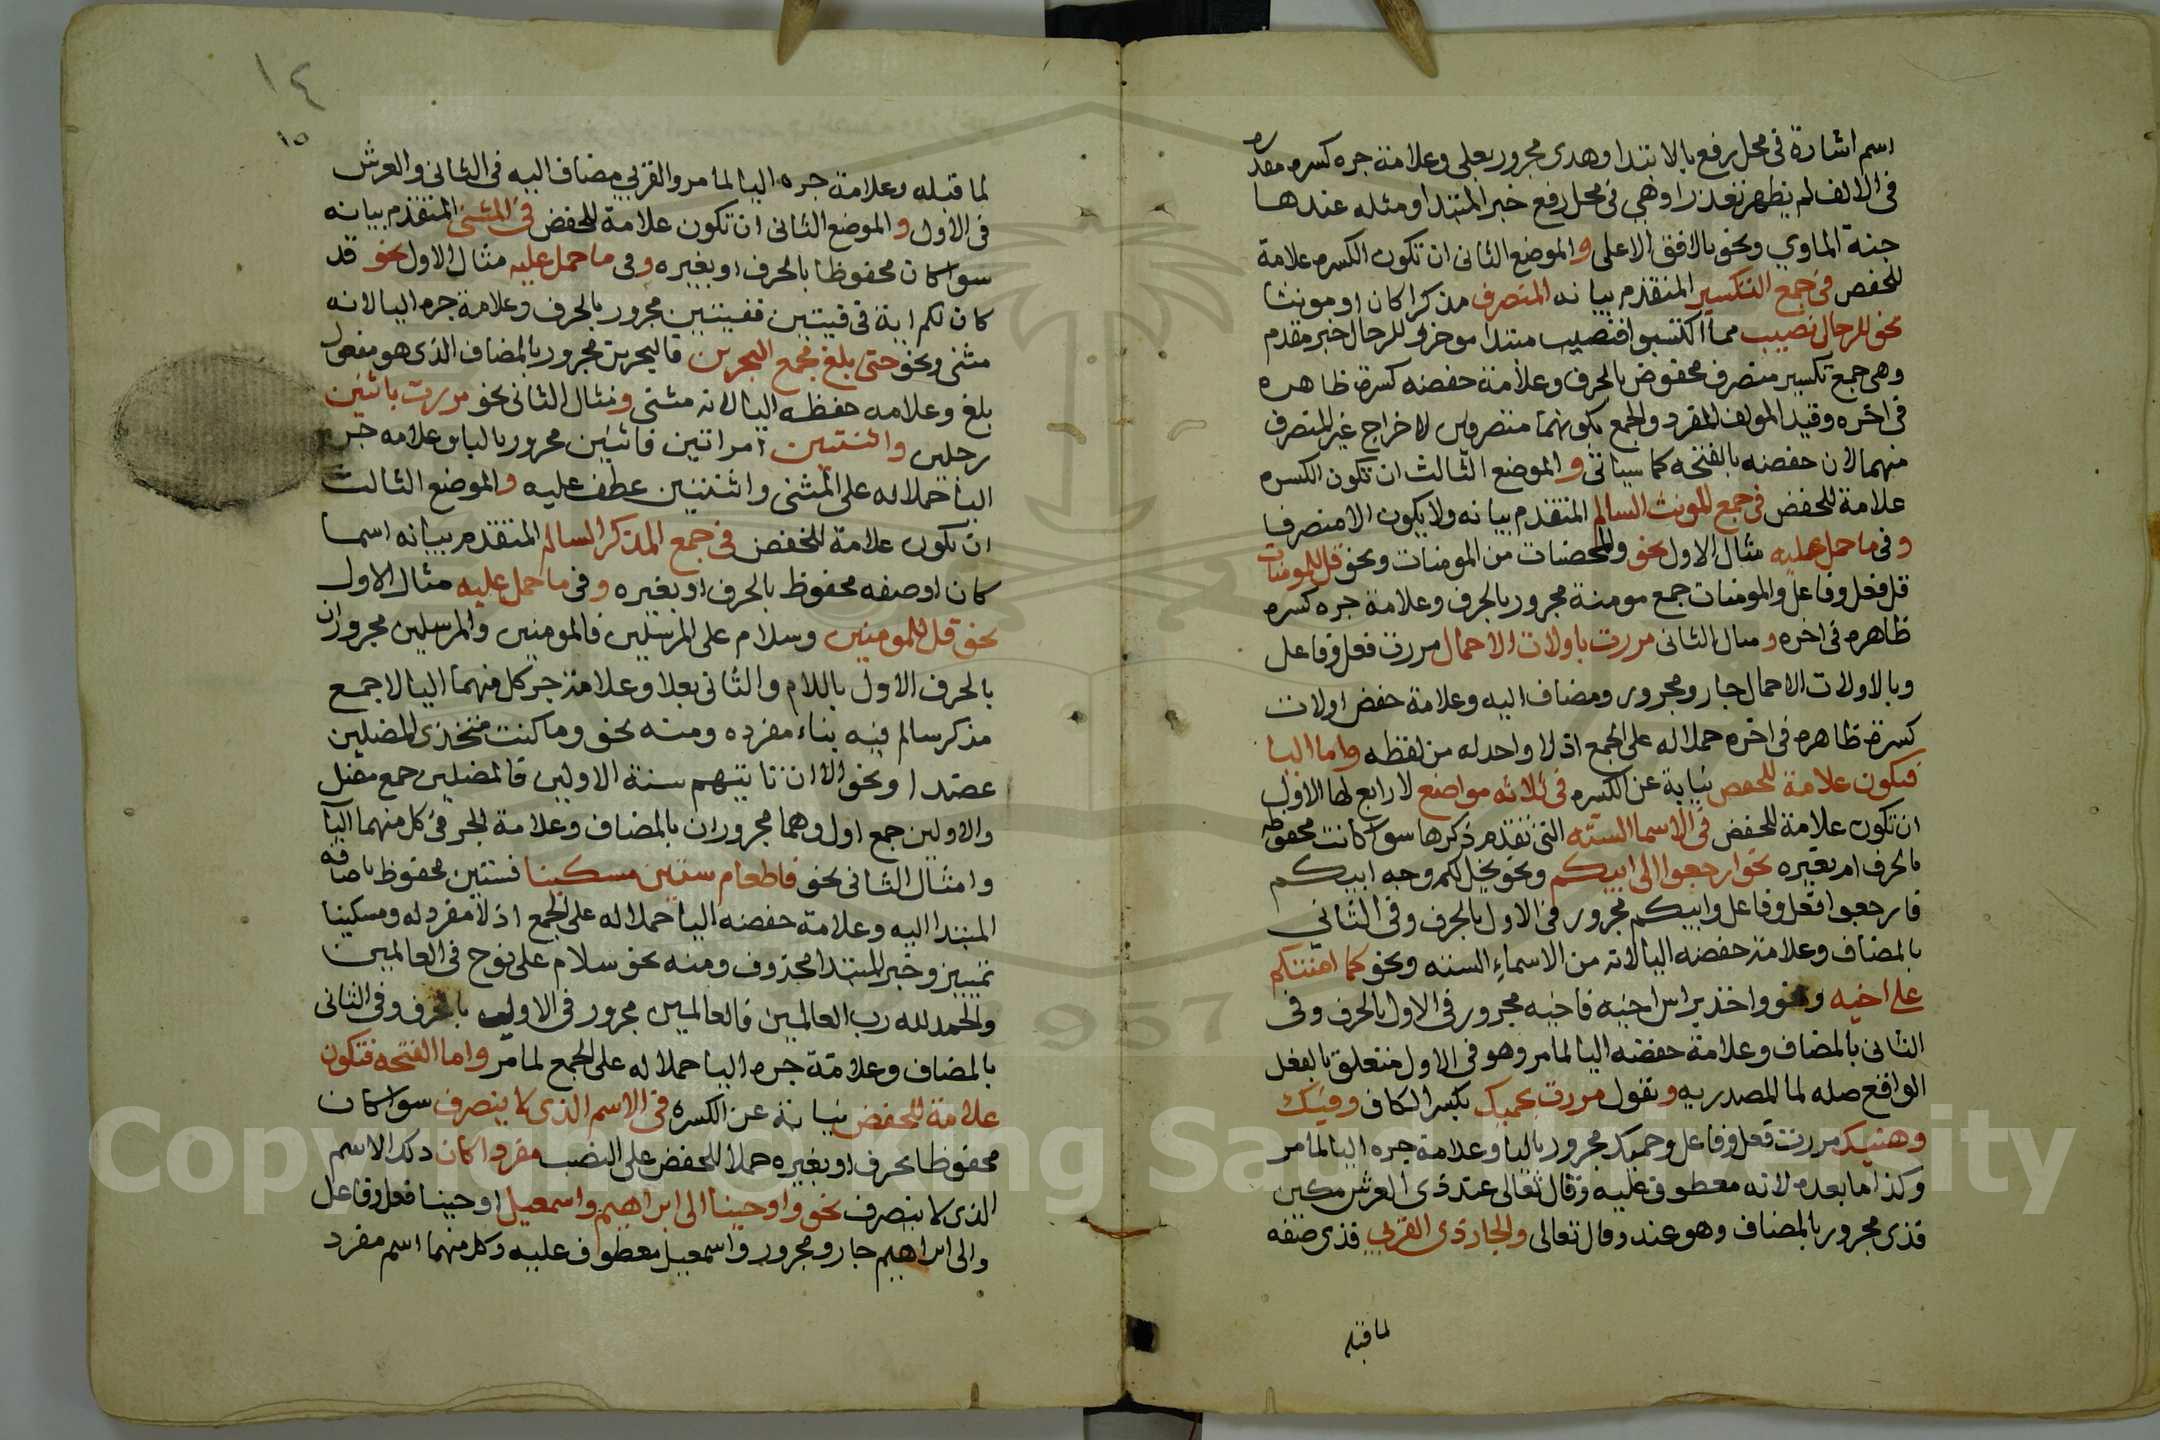 اسم اشارة فى محل رفع بالابتدا وهدى مجرور بعلى وعلامة جره كسره مقدره
فى الالف لم يظهر تعذرا وهى فى محل رفع خبر المبتدا ومثله عندها
جنة الماوي ونحو بالافق الاعلى والموضع الثانى ان تكون الكسره علامة
للخفض فى جمع التكسير المتقدم بيانه المتصرف مذكرا كان او مونثا
نحو للرجال نصيب مما اكتسبوا فنصيب مبتدا موخر وللرجال خبر مقدم
وهى جمع تكسير منصرف مخفوض بالحرف وعلامة خفضه كسرة ظاهره
فى اخره وقيد المولف المفرد والجمع بكونهما منصرفين لاخراج غير المنصرف
منهما لان خفضه بالفتحه كما سياتى والموضع الثالث ان تكون الكسره
علامة للخفض فى جمع المونث السالم المتقدم بيانه ولا يكون الا منصرفا
وفى ما حمل عليه مثال الاول نحو والمحصنات من المومنات ونحو قل للمومنات
قل فعل وفاعل والمومنات جمع مومنة مجرور بالحرف وعلامة جره كسره
ظاهره فى اخره ومثال الثانى مررت باولات الاحمال مررت فعل وفاعل
وبالاولات الاحمال جار ومجرور ومضاف اليه وعلامة خفض اولات
كسرة ظاهره فى اخره حملا له على الجمع اذ لا واحد له من لفظه واما اليا
فتكون علامة للخفض نيابة عن الكسره فى ثلاثه مواضع لا رابع لها الاول
ان تكون علامة للخفض فى الاسما السته التى تقدم ذكرها سوا كانت محفوظه
بالحرف ام بغيره نحو ارجعوا الى ابيكم ونحو يخل لكم وجه ابيكم
فارجعوا فعل وفاعل وابيكم مجرور فى الاول بالحرف وفى الثاني
بالمضاف وعلامة خفضه اليا لانه من الاسماء السته ونحو كما امنتكم
على اخيه ونحو واخذ براس اخيه فاخيه مجرور فى الاول بالحرف وفى
الثانى بالمضاف وعلامة خفضه اليا لما مر وهو فى الاول متعلق بالفعل
الواقع صله لما المصدريه وتقول مررت بحميك بكسر الكاف وفيك
وهنيك مررت فعل وفاعل وحميك مجرور بالبا وعلامة جره اليا لما مر
وكذا ما بعده لانه معطوف عليه وقال تعالى عند ذى العرش مكين
فذى مجرور بالمضاف وهو عند وقال تعالى والجار ذى القربى فذى صفه
لما قبله
١٤
١٥
لما قبله وعلامة جره اليا لما مر والقربي مضاف اليه فى الثانى والعرش
فى الاول والموضع الثانى ان تكون علامة للخفض فى المثنى المتقدم بيانه
سوا كان محفوظا بالحرف او بغيره وفى ما حمل عليه مثال الاول نحو قد
كان لكم اية فى فيتين ففيتين مجرور بالحرف وعلامة جره اليا لانه
مثنى ونحو حتى بلغ مجمع البحرين فالبحرين مجرور بالمضاف الذى هو مفعول
بلغ وعلامه حفظه اليا لانه مثنى ومثال الثانى نحو مررت باثنين
رجلين واثنتين امراتين فاثنين مجرور بالبا وعلامه جره
اليا حملا له على المثنى واثنتين عطف عليه والموضع الثالث
ان تكون علامة للخفض فى جمع المذكر السالم المتقدم بيانه اسما
كان او صفه محفوظ بالحرف او بغيره وفى ما حمل عليه مثال الاول
نحو قل للمومنين وسلام على المرسلين فالمومنين والمرسلين مجروران
بالحرف الاول باللام والثانى بعلا وعلامة جر كل منهما اليا لا جمع
مذكر سالم فيه بناء مفرده ومنه نحو وما كنت متخذى المضلين
عضدا ونحو الا ان تاتيهم سنة الاولين فالمضلين جمع مضل
والاولين جمع اول وهما مجروران بالمضاف وعلامة الجر فى كل منهما اليا
وامثال الثانى نحو فاطعام ستين مسكينا فستين محفوظ باضافه
المبتدا اليه وعلامة خفضه اليا حملا له على الجمع اذ لا مفرد له ومسكينا
تمييز وخبر المبتدا محذوف ومنه نحو سلام على نوح فى العالمين
والحمد لله رب العالمين فالعالمين مجرور فى الاول بالحرف وفى الثانى
بالمضاف وعلامة جره اليا حملا له على الجمع لما مر واما الفتحه فتكون
علامة للخفض نيابة عن الكسره فى الاسم الذى لا ينصرف سوا كان
محفوظا بحرف او بغيره حملا للخفض على النصب مفردا كان ذلك الاسم
الذى لا ينصرف نحو واوحينا الى ابراهيم واسمعيل اوحينا فعل وفاعل
والى ابراهيم جار ومجرور واسمعيل معطوف عليه وكل منهما اسم مفرد
1957
Copyright © King Saud University